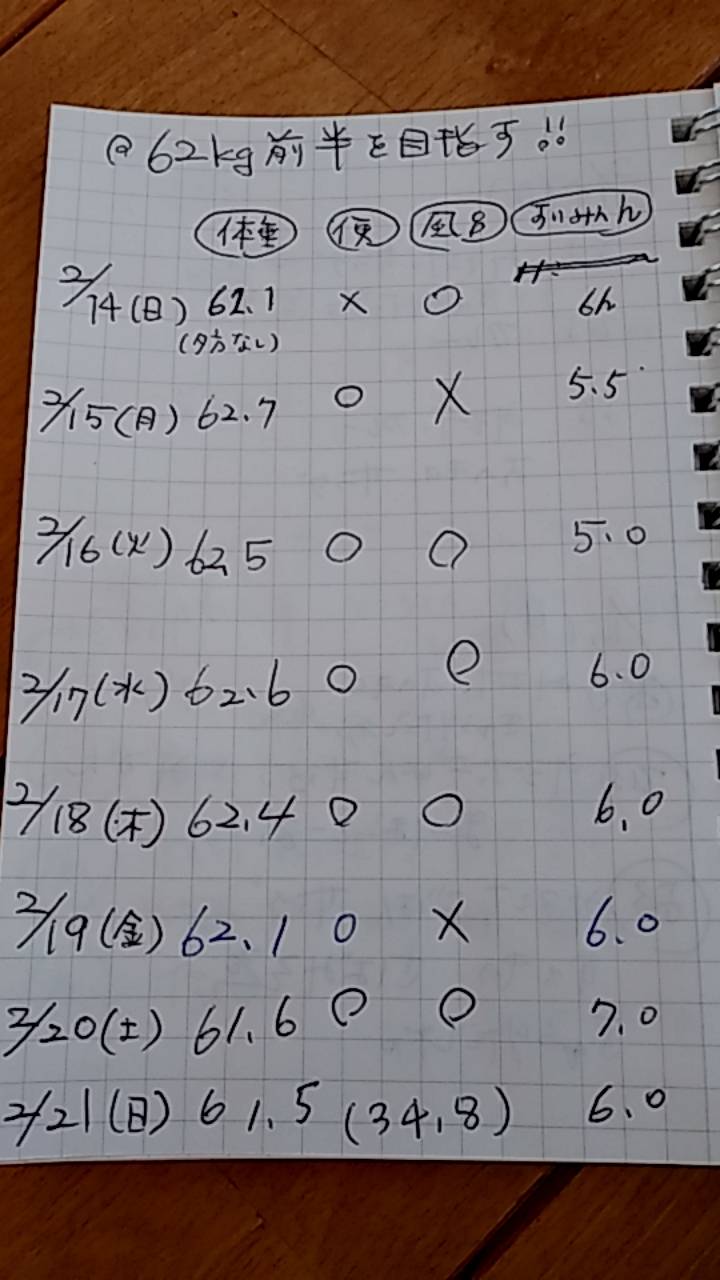 @ 62kg前半を目指す!!
体重 便 風呂 すいみん
2/14(日) 62.1 × ○ 6h
(夕方なし)
2/15(月) 62.7 ○ × 5.5
2/16(火) 62.5 ○ ○ 5.0
2/17(水) 62.6 ○ ○ 6.0
2/18(木) 62.4 ○ ○ 6.0
2/19(金) 62.1 ○ × 6.0
2/20(土) 61.6 ○ ○ 7.0
2/21(日) 61.5 (34.8) 6.0